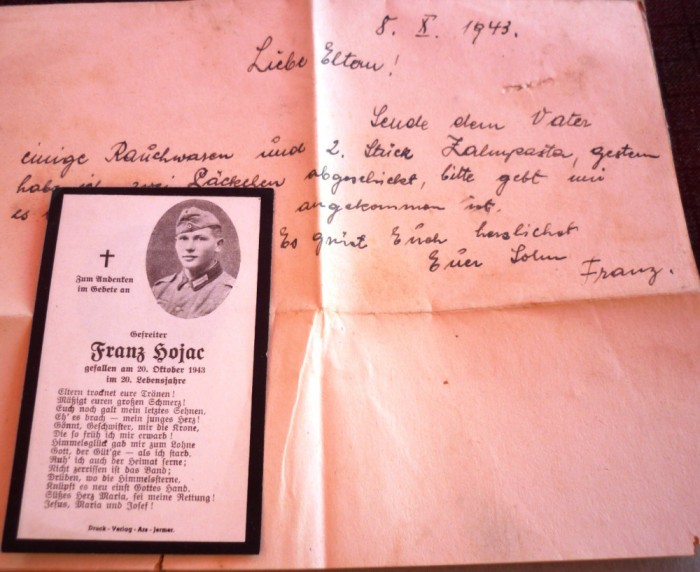 8. X. 1943.
Liebe Eltern!
Sende dem Vater
einige Rauchwaren und 2. Stück Zahnpasta, gestern
habe ich zwei Päckchen abgeschickt, bitte gebt mir
es angekommen ist.
Es grüßt Euch herzlichst
Euer Sohn
Franz.
Zum Andenken
im Gebete an
Gefreiter
Franz Hojac
gefallen am 20. Oktober 1943
im 20. Lebensjahre
Eltern trocknet eure Tränen!
Mäßigt euren großen Schmerz!
Euch noch galt mein letztes Sehnen,
Eh' es brach — mein junges Herz!
Gönnt, Geschwister, mir die Krone,
Die so früh ich mir erwarb!
Himmelsglück gab mir zum Lohne
Gott, der Güt'ge — als ich starb.
Ruh' ich auch der Heimat ferne;
Nicht zerrissen ist das Band;
Drüben, wo die Himmelsterne,
Knüpft es neu einst Gottes Hand.
Süßes Herz Maria, sei meine Rettung!
Jesus, Maria und Josef!
Druck - Verlag - Ars - Jermar.